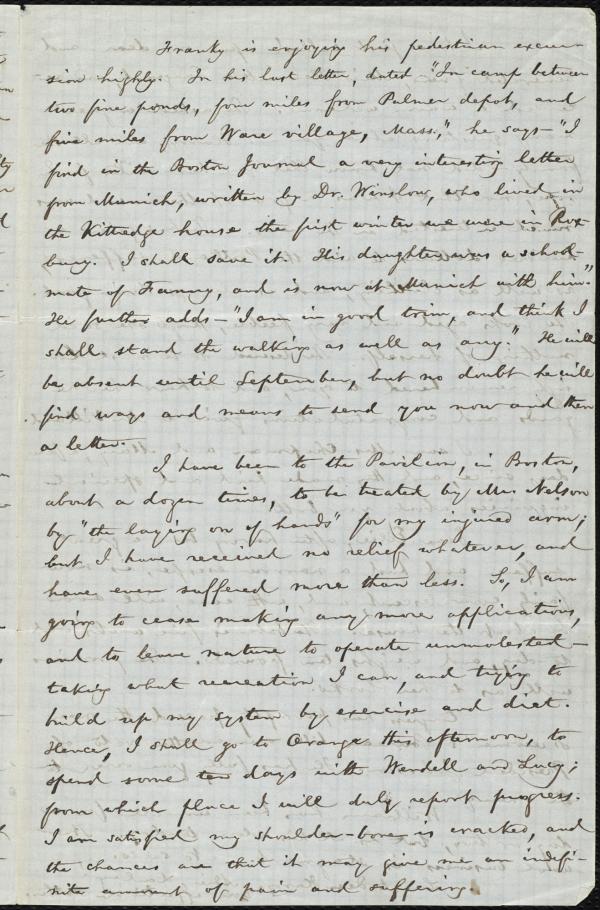 Franky is enjoying his pedestrian excur-
sion highly. In his last letter, dated "In camp between
two fine ponds, four miles from Palmer depot, and
five miles from Ware village, Mass.," he says — "I
find in the Boston Journal a very interesting letter
from Munich, written by Dr. Winslow, who lived in
the Kittredge house the first winter we were in Rox-
bury. I shall save it. His daughter was a school-
mate of Fanny, and is now at Munich with him."
He further adds — "I am in good trim, and think I
shall stand the walking as well as any." He will
be absent until September, but no doubt he will
find ways and means to send you now and then
a letter.
I have been to the Pavilion, in Boston,
about a dozen times, to be treated by Mrs Nelson
by "the laying on of hands" for my injured arm;
but I have received no relief whatever, and
have even suffered more than less. So, I am
going to cease making any more applications,
and to leave nature to operate unmolested —
taking what recreation I can, and trying to
build up my system by exercise and diet.
Hence, I shall go to Orange this afternoon, to
spend some ten days with Wendell and Lucy;
from which place I will duly report progress.
I am satisfied my shoulder-bone is cracked, and
the chances are that it may give me an indefi-
nite amount of pain and suffering.